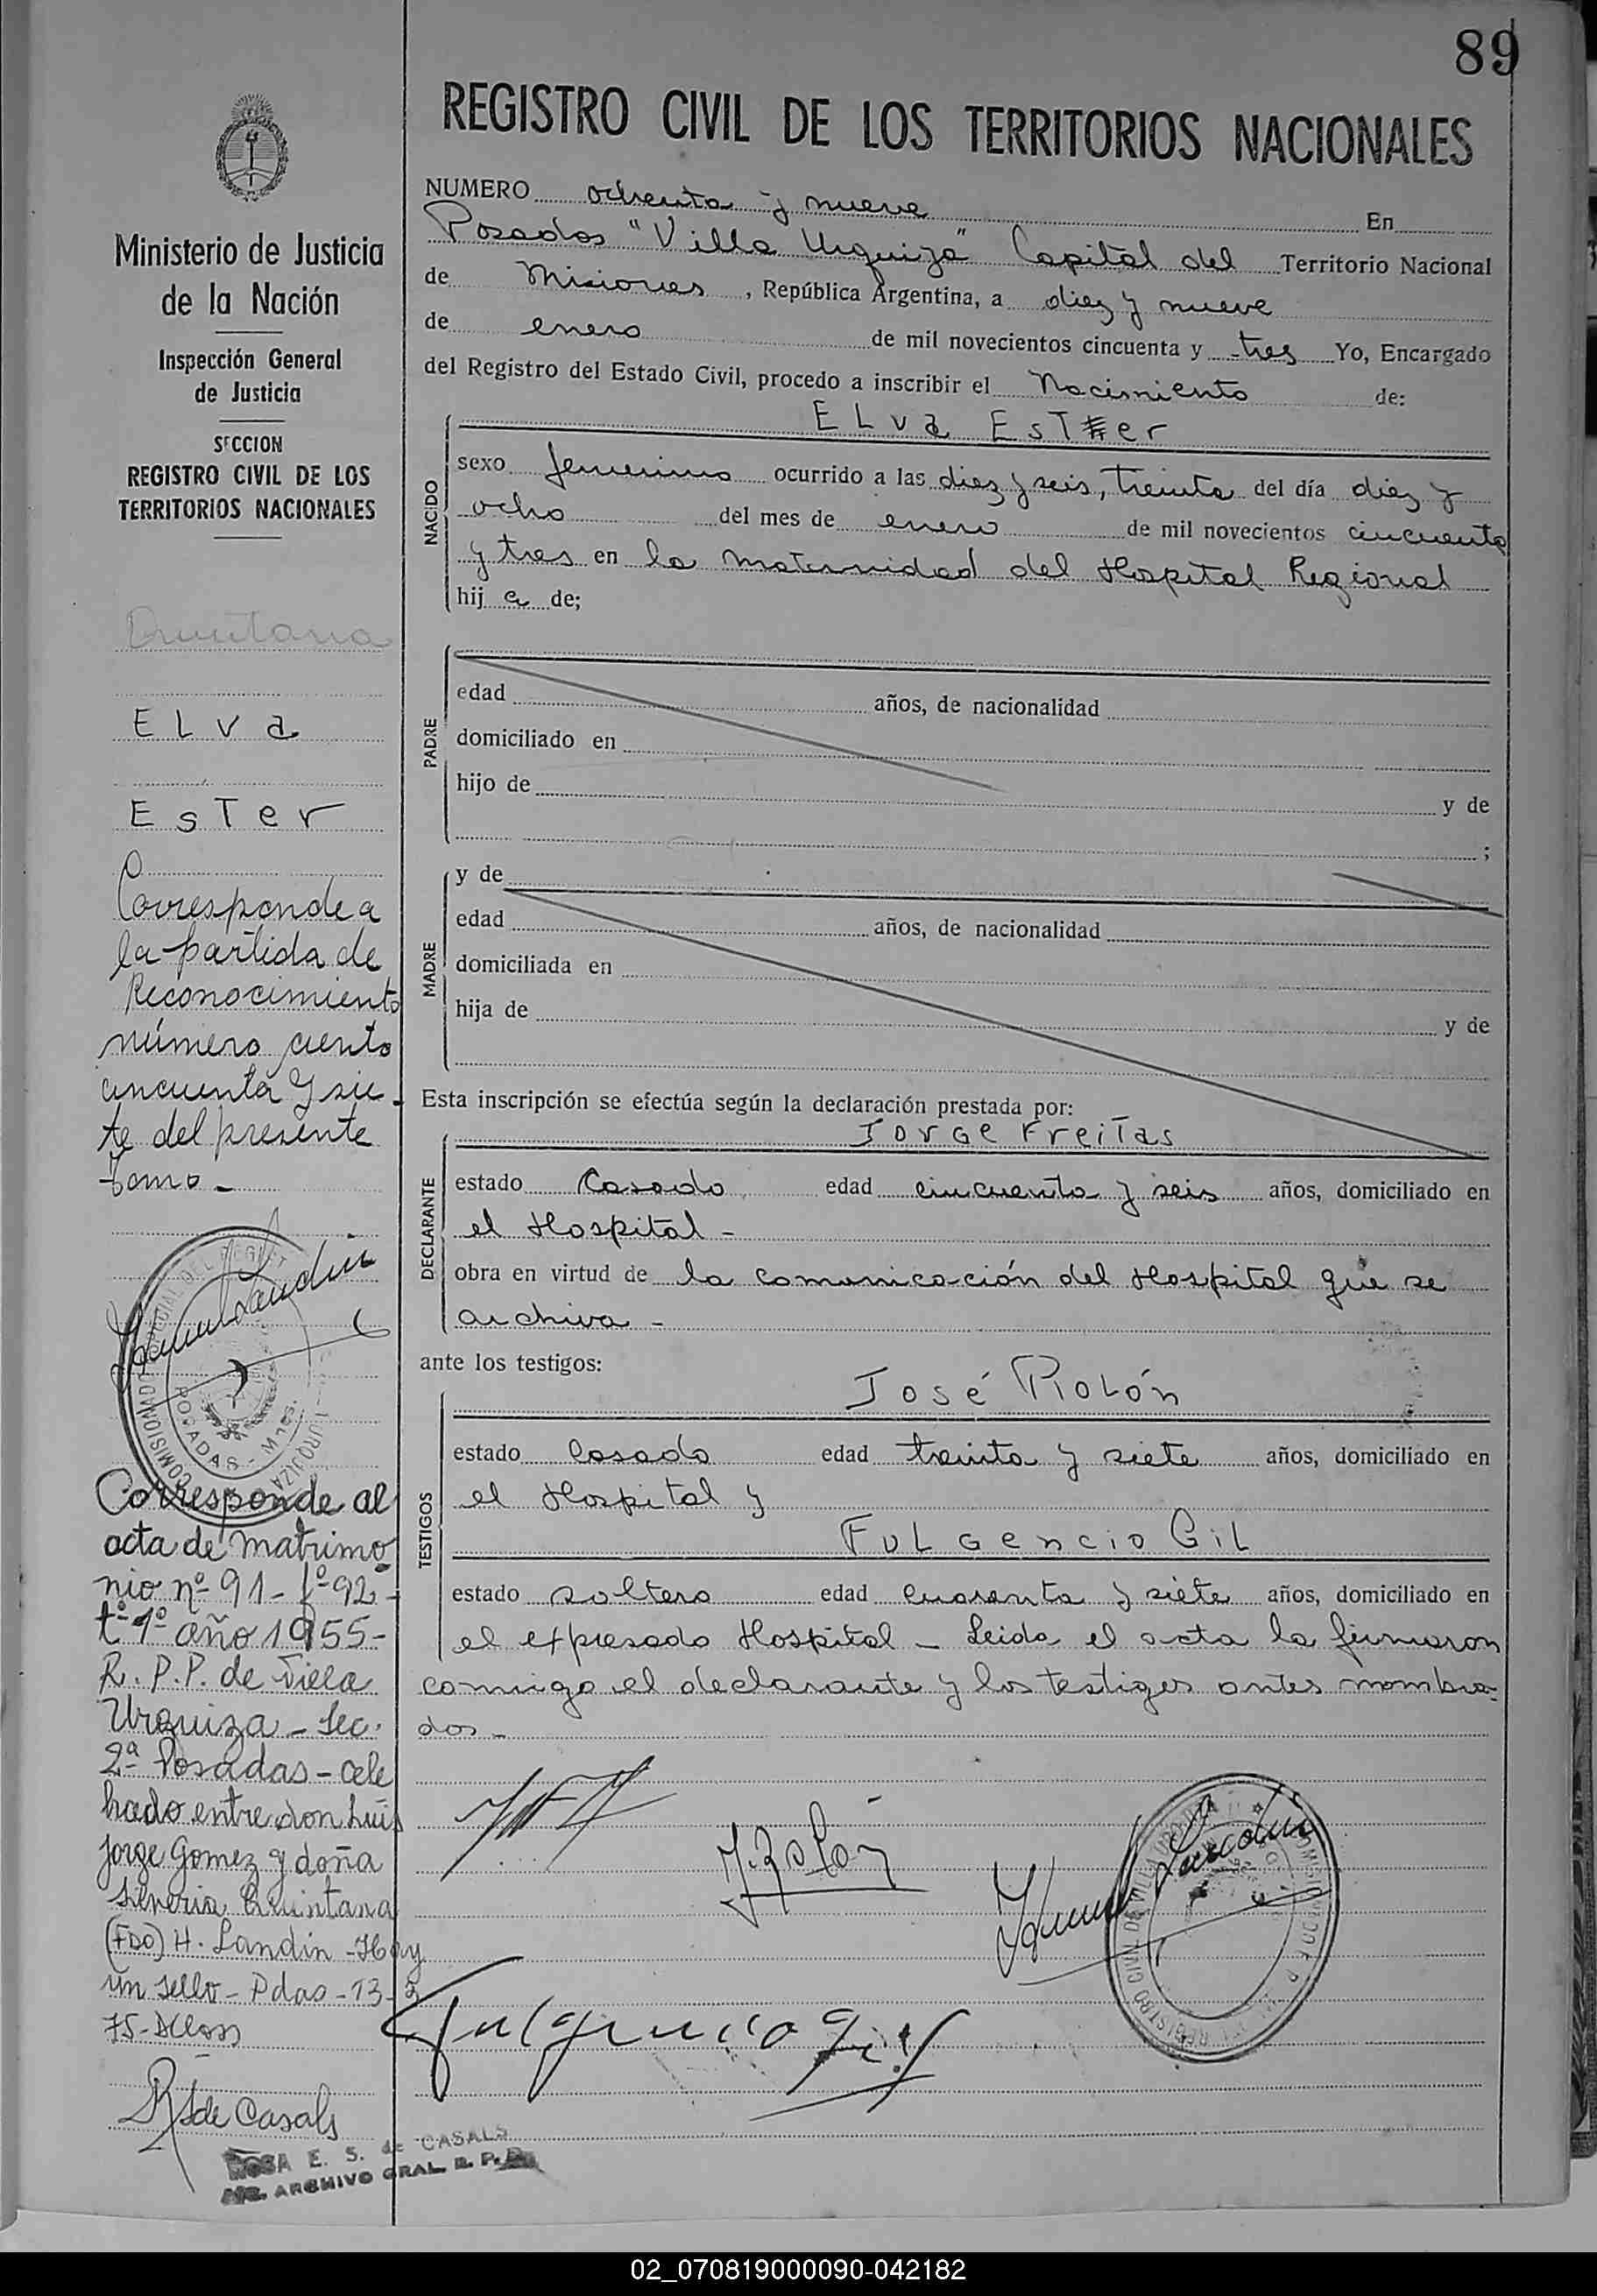 89
REGISTRO CIVIL DE LOS TERRITORIOS NACIONALES
NUMERO ochenta y nueve En
Posadas "Villa Urquiza" Capital del Territorio Nacional
de Misiones, República Argentina, a diez y nueve
de enero de mil novecientos cincuenta y tres Yo, Encargado
del Registro del Estado Civil, procedo a inscribir el Nacimiento de:
ELva EsTer
NACIDO
sexo femenino ocurrido a las diez y seis, treinta del día diez y
ocho del mes de enero de mil novecientos cincuenta
y tres en la maternidad del Hospital Regional
hij a de;
PADRE
edad años, de nacionalidad
domiciliado en
hijo de y de
;
MADRE
y de
edad años, de nacionalidad
domiciliada en
hija de y de
Esta inscripción se efectúa según la declaración prestada por:
Jorge FreiTas
DECLARANTE
estado Casado edad cincuenta y seis años, domiciliado en
el Hospital -
obra en virtud de la comunicación del Hospital que se
archiva -
ante los testigos:
José Rolón
TESTIGOS
estado Casado edad treinta y siete años, domiciliado en
el Hospital y
FuLgencio Gil
estado soltero edad cuarenta y siete años, domiciliado en
el expresado Hospital - Leida el acta la firmaron
conmigo el declarante y los testigos antes nombra-
dos -
J. Rolón
Fulgencio Gil
Ministerio de Justicia
de la Nación
Inspección General
de Justicia
SECCION
REGISTRO CIVIL DE LOS
TERRITORIOS NACIONALES
Quintana
ELva
EsTer
Corresponde a
la partida de
Reconocimiento
número ciento
cincuenta y sie-
te del presente
tomo -
POSADAS - Mnes.
Corresponde al
acta de matrimo
nio nº 91 - fº 92 -
tº 1º año 1955 -
R. P. P. de Villa
Urquiza - Sec.
2ª Posadas - cele
brado entre don Luis
Jorge Gomez y doña
Silveria Quintana
(FDO) H. Landin - Hay
un sello - Pdas - 13 - 3
75 -
R S de Casals
ROSA E. S. de CASALS
ARCHIVO GRAL. R. P. P.
02_070819000090-042182